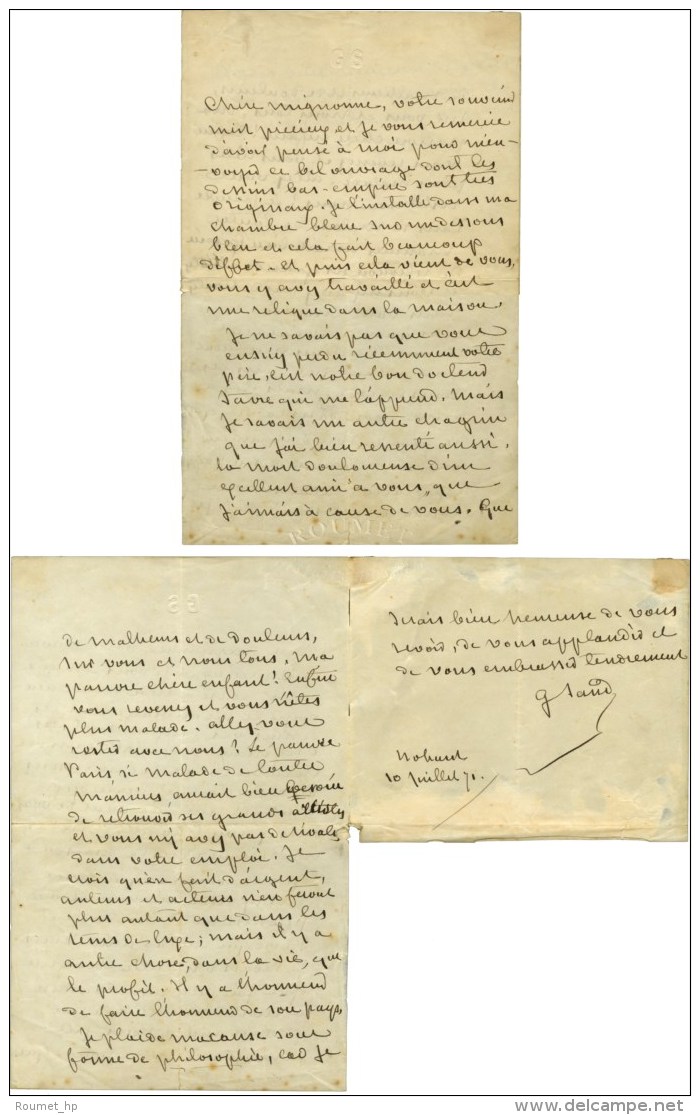 Chère mignonne, votre souvenir
m'est précieux et je vous remercie
d'avoir pensé à moi pour m'en-
-voyer ce bel ouvrage dont les
dessins bas-empire sont très
originaux. Je l'installe dans ma
chambre bleue sur un dessous
bleu et cela fait beaucoup
d'effet. et puis cela vient de vous,
vous y avez travaillé et c'est
une relique dans la maison.
Je ne savais pas que vous
eussiez perdu récemment votre
père, c'est notre bon docteur
Favre qui me l'apprend. Mais
je savais un autre chagrin
que j'ai bien ressenti aussi.
la mort douloureuse d'un
excellent ami à vous, que
j'aimais à cause de vous. Que
ROUMET
de malheurs et de douleurs,
sur vous et nous tous, ma
pauvre chère enfant! Enfin
vous revenez et vous n'êtes
plus malade. allez vous
rester avec nous? Le pauvre
Paris si malade de toutes
manières aurait bien besoin
de retrouver ses grands artistes
et vous n'y avez pas de rivales
dans votre emploi. Je
crois qu'en fait d'argent,
auteurs et acteurs n'en feront
plus autant que dans les
tems de luxe; mais il y a
autre chose, dans la vie, que
le profit. Il y a l'honneur
de faire l'honneur de son pays.
Je plaide ma cause sous
forme de philosophie, car je
serais bien heureuse de vous
revoir, de vous applaudir et
de vous embrasser tendrement
G Sand
Nohant
10 juillet 71.
Roumet_hp
www.delcampe.net